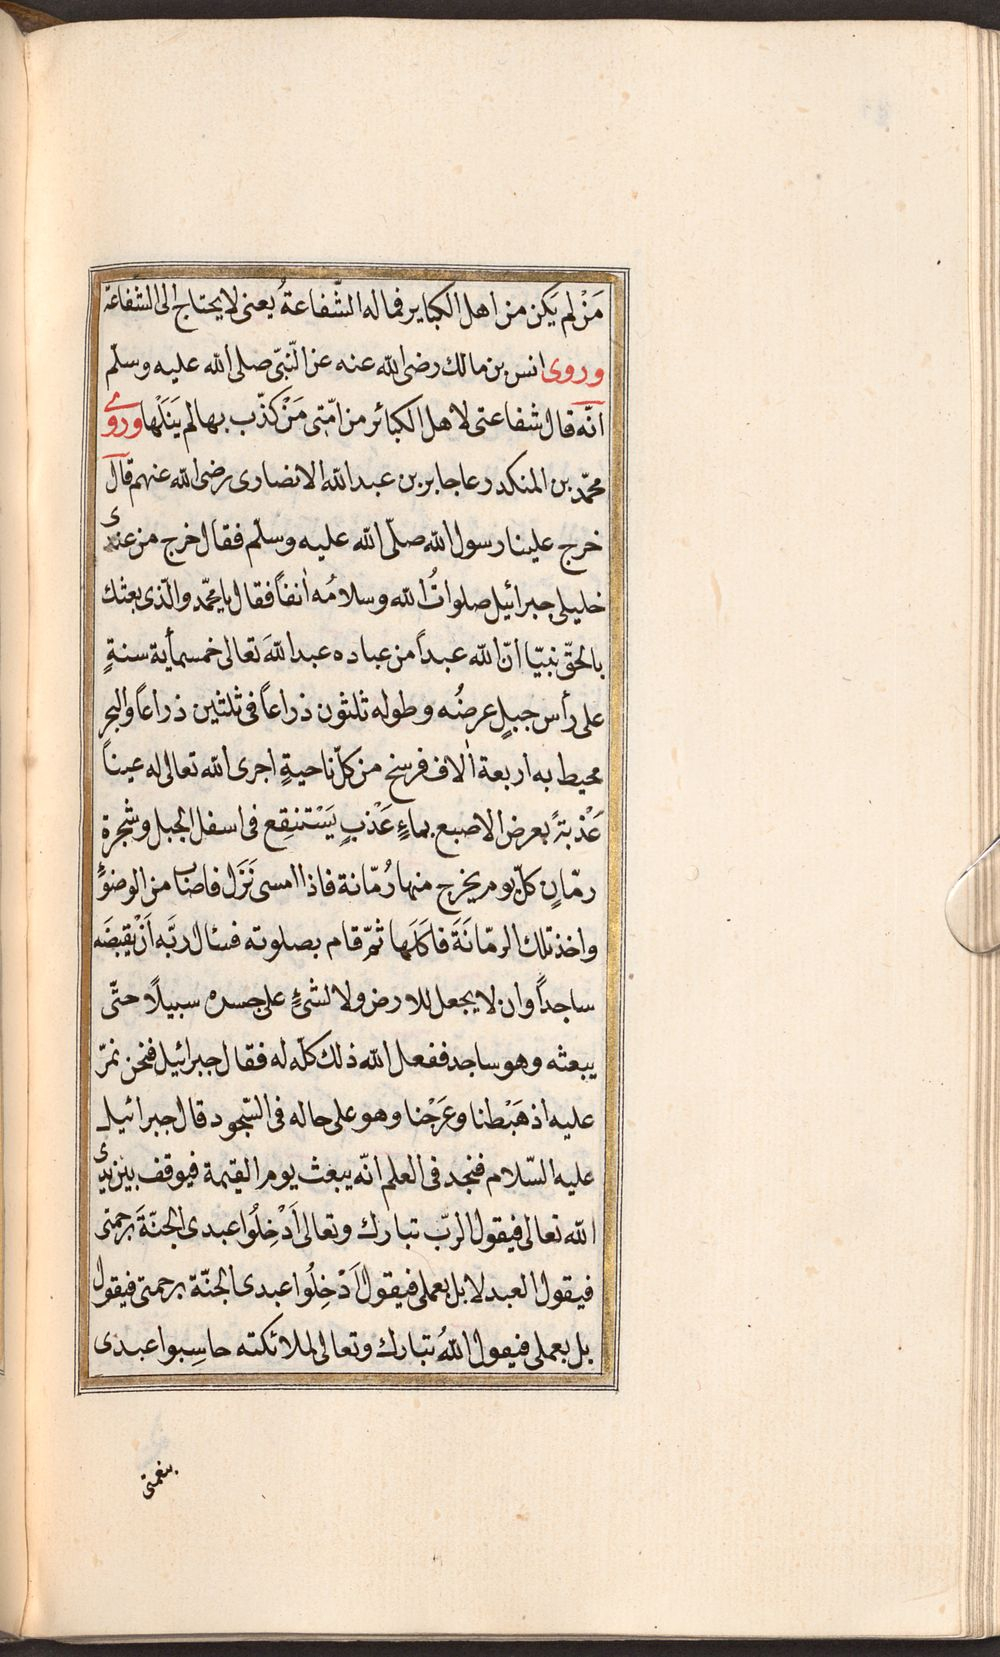 مَنْ لم يَكن من اهل الكباير فماله الشَّفاعةُ يعنى لا يحتاج الى الشفاعة
وروى انس بن مالك رضى الله عنه عن النّبىّ صلى الله عليه وسلّم
انّه قال شفاعتى لاهل الكبائر من امّتى مَنْ كذّب بها لم يَنَلْها وروى
محمّد بن المنكدر عن جابر بن عبد الله الانصارى رضى الله عنهم قال
خرج علينا رسول الله صلّى الله عليه وسلّم فقال خرج من عندى
خليلى جبرائيل صلواتُ الله وسلامُه اٰنفاً فقال يا محمّد والّذى بعثك
بالحقّ نبيّا انّ الله عبداً من عباده عبد اللهَ تعالى خمسمأية سنةٍ
على رأس جبلٍ عرضُه وطوله ثلثون ذراعاً فى ثلثين ذراعاً والبحر
محيط به اربعة اٰلاف فرسخ من كلّ ناحيةٍ اجرى الله تعالى له عيناً
عَذْبةً بعرض الاصبع بماءٍ عَذْبٍ يَسْتنقِع فى اسفل الجبل وشجرة
رمّانٍ كلّ يوم يخرج منها رُمّانة فاذا امسى نَزَل فاصاب من الوضوءِ
واخذ تلك الرمّانَةَ فاكَلَها ثمّ قام بصلوته فسئال ربَّه اَنْ يقبضَه
ساجداً وان لا يجعل للارض ولا لشئٍ على جسده سبيلًا حتّى
يبعثه وهو ساجد ففعل الله ذلك كلّه له فقال جبرائيل فنحن نمرّ
عليه اذ هَبَطْنا وعَرَجْنا وهو على حاله فى السّجود قال جبرائيل
عليه السّلام فنجد فى العلم انّه يبعث يوم القيمة فيوقف بين يدى
الله تعالى فيقول الربّ تبارك وتعالى اَدْخِلُوا عبدى الجنّةَ برحمتى
فيقول العبد لا بل بعملى فيقول اَدْخِلُوا عبدى الجنّة برحمتى فيقول
بل بعملى فيقول اللهُ تبارك وتعالى لملائكته حاسِبوا عبدى
بنعمتى